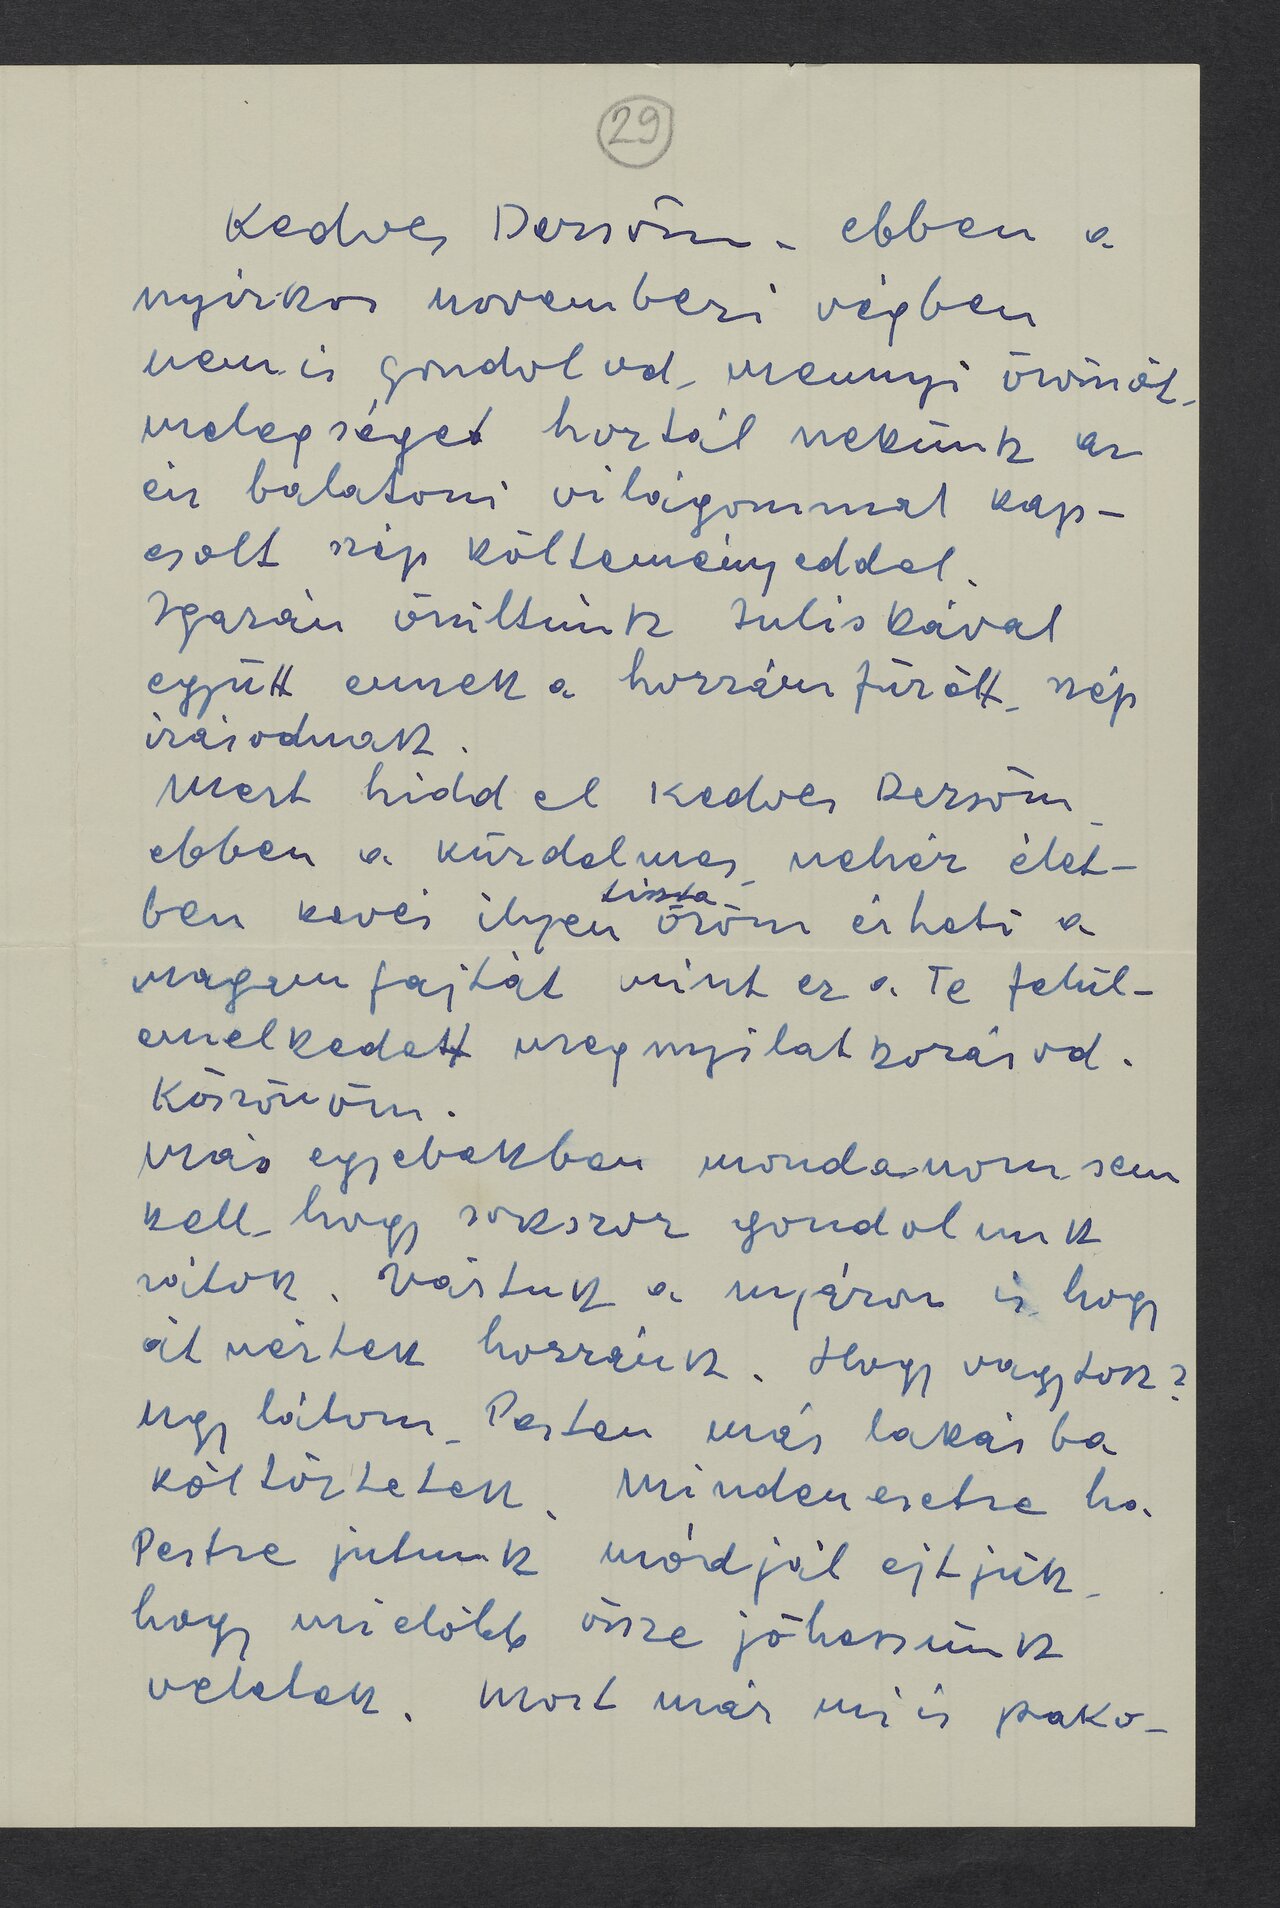 29
Kedves Dezsőm - ebben a
nyirkos novemberi végben
nem is gondolod, mennyi örömöt,
melegséget hoztál nekünk az
én balatoni világommal kap-
csolt szép költeményeddel.
Igazán örültünk Juliskával
együtt ennek a hozzám fűzött, szép
írásodnak.
Mert hidd el Kedves Dezsőm,
ebben a küzdelmes, nehéz élet-
ben kevés ilyen tiszta öröm érheti a
magam fajtát mint ez a Te felül-
emelkedett megnyilatkozásod.
Köszönöm.
Más egyebekben mondanom sem
kell, hogy sokszor gondolunk
rátok. Vártuk a nyáron is, hogy
át néztek hozzánk. Hogy vagytok?
Ugy látom, Pesten más lakásba
költöztetek. Mindenesetre ha
Pestre jutunk módjál ejtjük,
hogy mielőbb össze jöhessünk
veletek. Most már mi is pako-